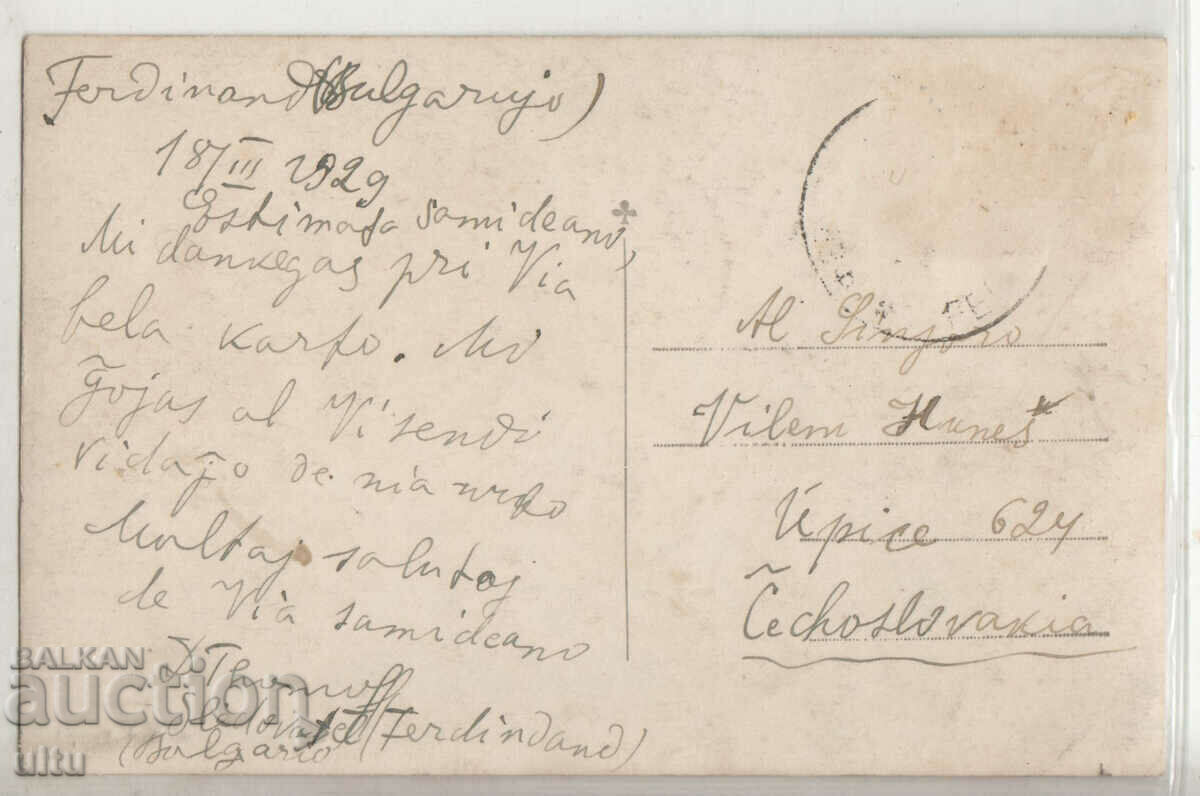 Ferdinand (Bulgarujo)
18/III 1929
Estimata samideano,
Mi dankegas pri Via
bela karto. Mi
ĝojas al Vi sendi
vidaĵo de nia urbo
Multaj salutoj
de Via samideano
D. Thomoff
(Ferdindand)
(Bulgario
Al Sinjoro
Vilem Huneš
Úpice 624
Čechoslovakia
BALKAN
auction
ultu